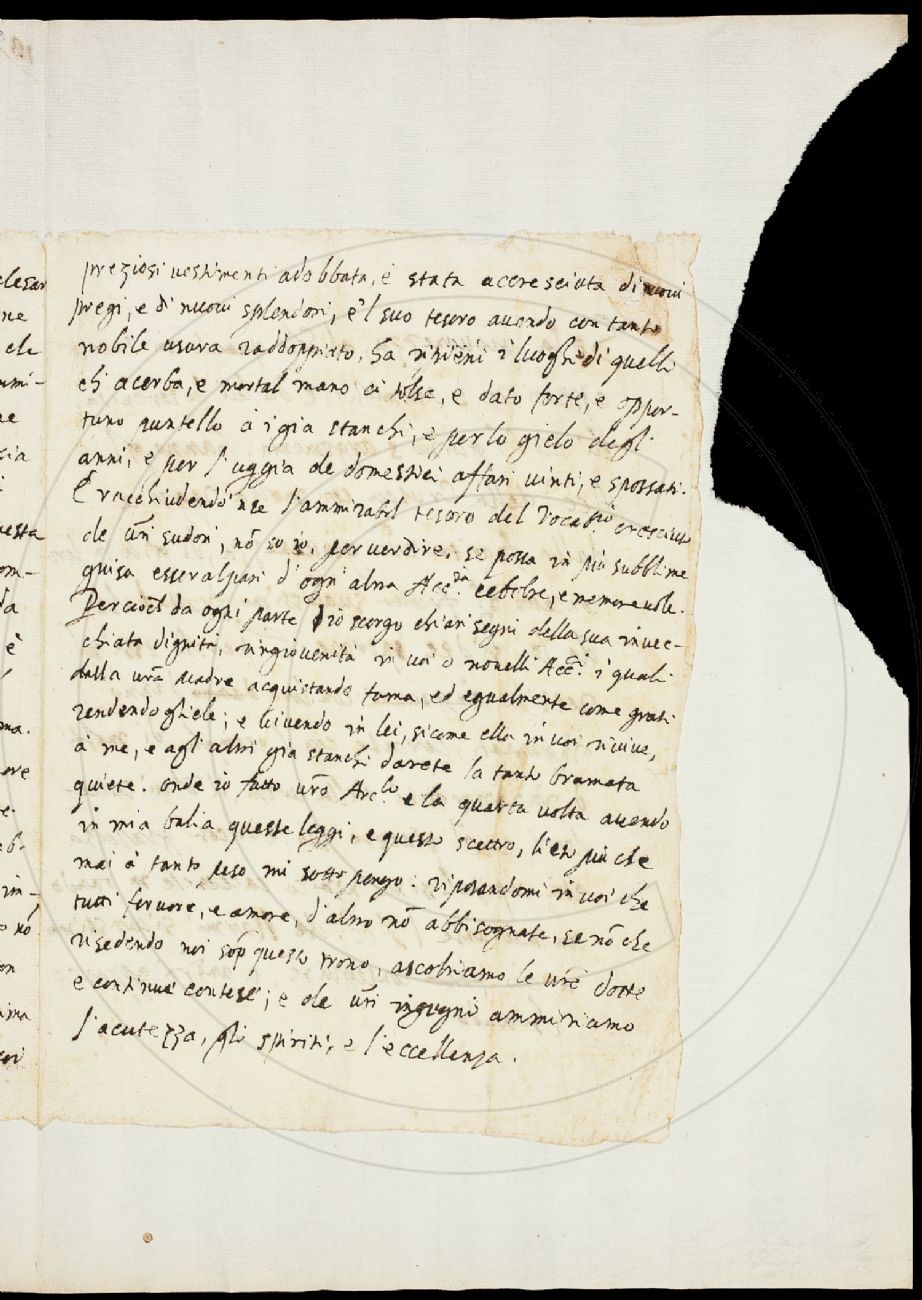 preziosi uestimenti adobbata, è stata accresciuta di nuoui
pregi, e di nuoui splendori, e 'l suo tesoro auendo con tanto
nobile usura raddoppiato, ha ripieni i luoghi di quelli
ch' acerba, e mortal mano ci tolse, e dato forte, e oppor-
tuno puntello à i gia stanchi, e per lo gielo degli
anni, e per l'uggia de domestici affari uinti, e spossati.
E racchiudendo nse l'ammirabil tesoro del Vocab.rio cresciuto
de uri sudori, nō so io, per uer dire, se possa in più subblime
guisa esser al pari d' ogni altra Acc.ia celebre, e memoreuole.
Perciocħ da ogni parte io scorgo chiari segni della sua inuec-
chiata dignità, ringiouenita in uoi o nouelli Acc.i i quali
dalla ura Madre acquistando fama, ed egualmente come grati
rendendogliele; e uiuendo in lei, sicome ella in uoi riuiue,
à me, e agl' altri gia stanchi darete la tanto bramata
quiete. Onde io fatto uro Arc.lo e la quarta uolta auendo
in mia balia queste leggi, e questo scettro, lieto più che
mai à tanto peso mi sottopongo: riposandomi in uoi che
tutti feruore, e amore, d'altro nō abbisognate, se nō che
risedendo noi sop questo trono, ascoltiamo le ure dotte
e continue contese; e de uri ingegni ammiriamo
l'acutezza, gli spiriti, e l'eccellenza.